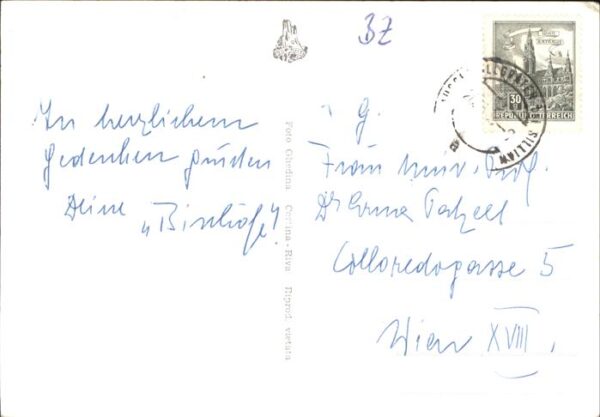 BZ
30 g
REPUBLIK ÖSTERREICH
SILLIAN
In herzlichem
Gedenken
Deine
„Bischöfe"!
Foto Ghedina Cortina-Riva Riprod. vietata
I. G.
Frau Univ. Prof.
Dr Erna Patzelt
Colloredogasse 5
Wien XVIII.